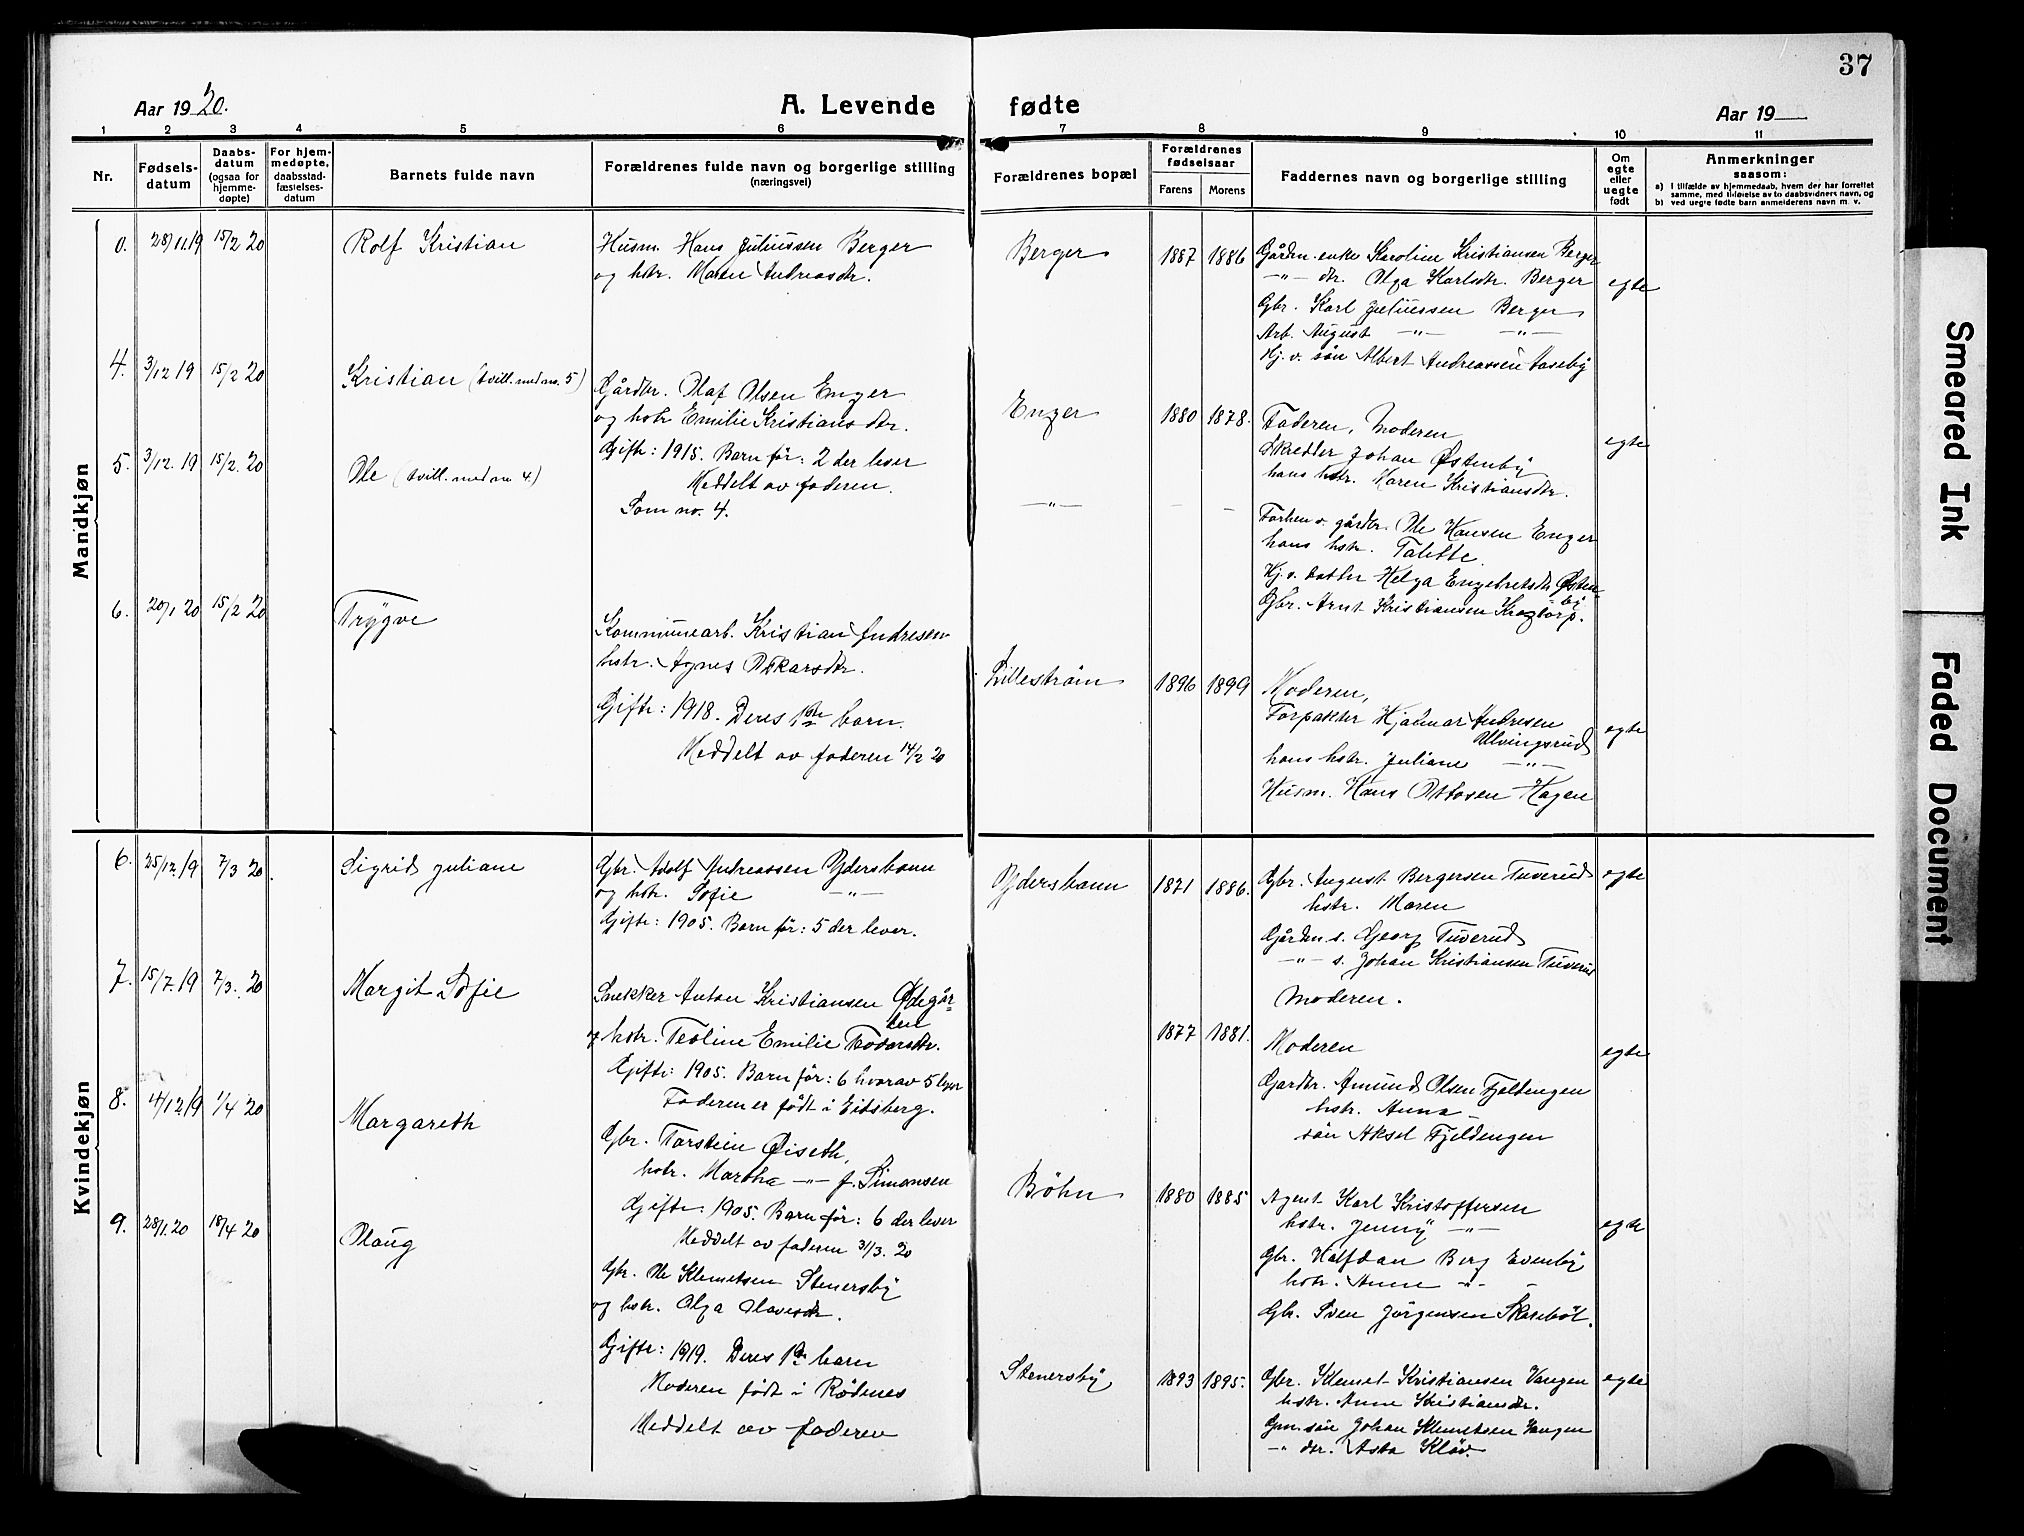 37
Aar 1920.
A. Levende fødte
Aar 19
1 2 3 4 5 6 7 8 9 10 11
Nr.
Fødsels-
datum
Daabs-
datum
(ogsaa for
hjemme-
døpte)
For hjem-
medøpte,
daabsstad-
fæstelses-
datum
Barnets fulde navn
Forældrenes fulde navn og borgerlige stilling
(næringsvei)
Forældrenes bopæl
Forældrenes
fødselsaar
Farens Morens
Faddernes navn og borgerlige stilling
Om
egte
eller
uegte
født
Anmerkninger
saasom:
a) I tilfælde av hjemmedaab, hvem der har forrettet
samme, med tilføielse av to daabsvidners navn, og
b) ved uegte fødte barn anmelderens navn m. v.
Mandkjøn
0. 28/11.19 15/2 20 Rolf Kristian
Husm. Hans Juliussen Berger
og hstr. Maren Andreasdtr.
Berger 1887 1886
Gårdm. enke Karoline Kristiansen Berger
-"- dtr. Olga Karlsdtr. Berger
Gbr. Karl Juliussen Berger
Arb. August -"- -"-
Hj. v. søn Albert Andreassen Aaseby
egte
4. 3/12 19 15/2 20 Kristian (tvill. med no. 5)
Gårdbr. Olaf Olsen Enger
og hstr Emilie Kristiansdtr.
Gifte: 1915. Barn før: 2 der lever
Meddelt av faderen.
Enger 1880 1878.
Faderen, Moderen
Skredder Johan Østenby
hans hstr. Karen Kristiansdtr.
egte
5. 3/12. 19 15/2. 20 Ole (tvill. med no 4.)
Som no. 4.
-"- - -
Forhen v. gårdbr. Ole Hansen Enger
hans hstr. Talette.
Hj. v. datter Helga Engebretsdtr Østen-
by
Gbr. Arnt Kristiansen Krogtorp.
6. 20/1 20 15/2 20 Trygve
Kommunearb. Kristian Andresen
hstr. Agnes Oskarsdtr.
Gifte: 1918. Deres 1ste barn.
Meddelt av faderen 14/2 20
Lillestrøm 1896 1899
Moderen,
Forpakter Hjalmar Andresen
Ulvingsrud
hans hstr. Juliane -"-
Husm. Hans Ottosen Hagen
egte
Kvindekjøn
6. 25/12/9 7/3 20 Sigrid Juliane
Gbr. Adolf Andreassen Ydersbann
og hstr. Sofie -"-
Gifte: 1905. Barn før: 5 der lever.
Ydersbann 1871 1886.
Gbr. August Bergersen Tuverud
hstr. Maren
Gårdm s. Georg Tuverud
-"- s. Johan Kristiansen Tuverud
Moderen.
egte
7. 15/7.19 7/3. 20 Margit Sofie
Snekker Anton Kristiansen Ødegår-
den
og hstr. Teoline Emilie Teodorsdtr.
Gifte: 1905. Barn før: 6 hvorav 5 lever
Faderen er født i Eidsberg.
1877 1881.
Moderen
Gardbr. Amund Olsen Fjeldengen
hstr. Anna -
søn Aksel Fjeldengen
egte
8. 4/12/9 1/4 20 Margareth
Gbr. Torstein Øiseth,
hstr. Martha -"- f. Simonsen
Gifte: 1905. Barn før: 6 der lever
Meddelt av faderen 31/3. 20
Böhn 1880 1885
Agent Karl Kristoffersen
hstr. Jenny -"-
Gbr. Halfdan Berg Evenby
hstr. Anne -"- -
Gbr. Sven Jørgensen Skasebøl.
egte
9. 28/1.20 18/4 20 Olaug
Gbr. Ole Klemetsen Stenersby
og hstr. Olga Olavesdtr.
Gifte: 1919. Deres 1ste barn
Moderen født i Rødenes
Meddelt av faderen
Stenersby 1893 1895.
Gbr. Klemet Kristiansen Vangen
hstr. Anne Kristiansdtr.
Gm. søn Johan Klemetsen Vangen
-"- dtr. Asta Kløv.
egte
Smeared Ink
Faded Document